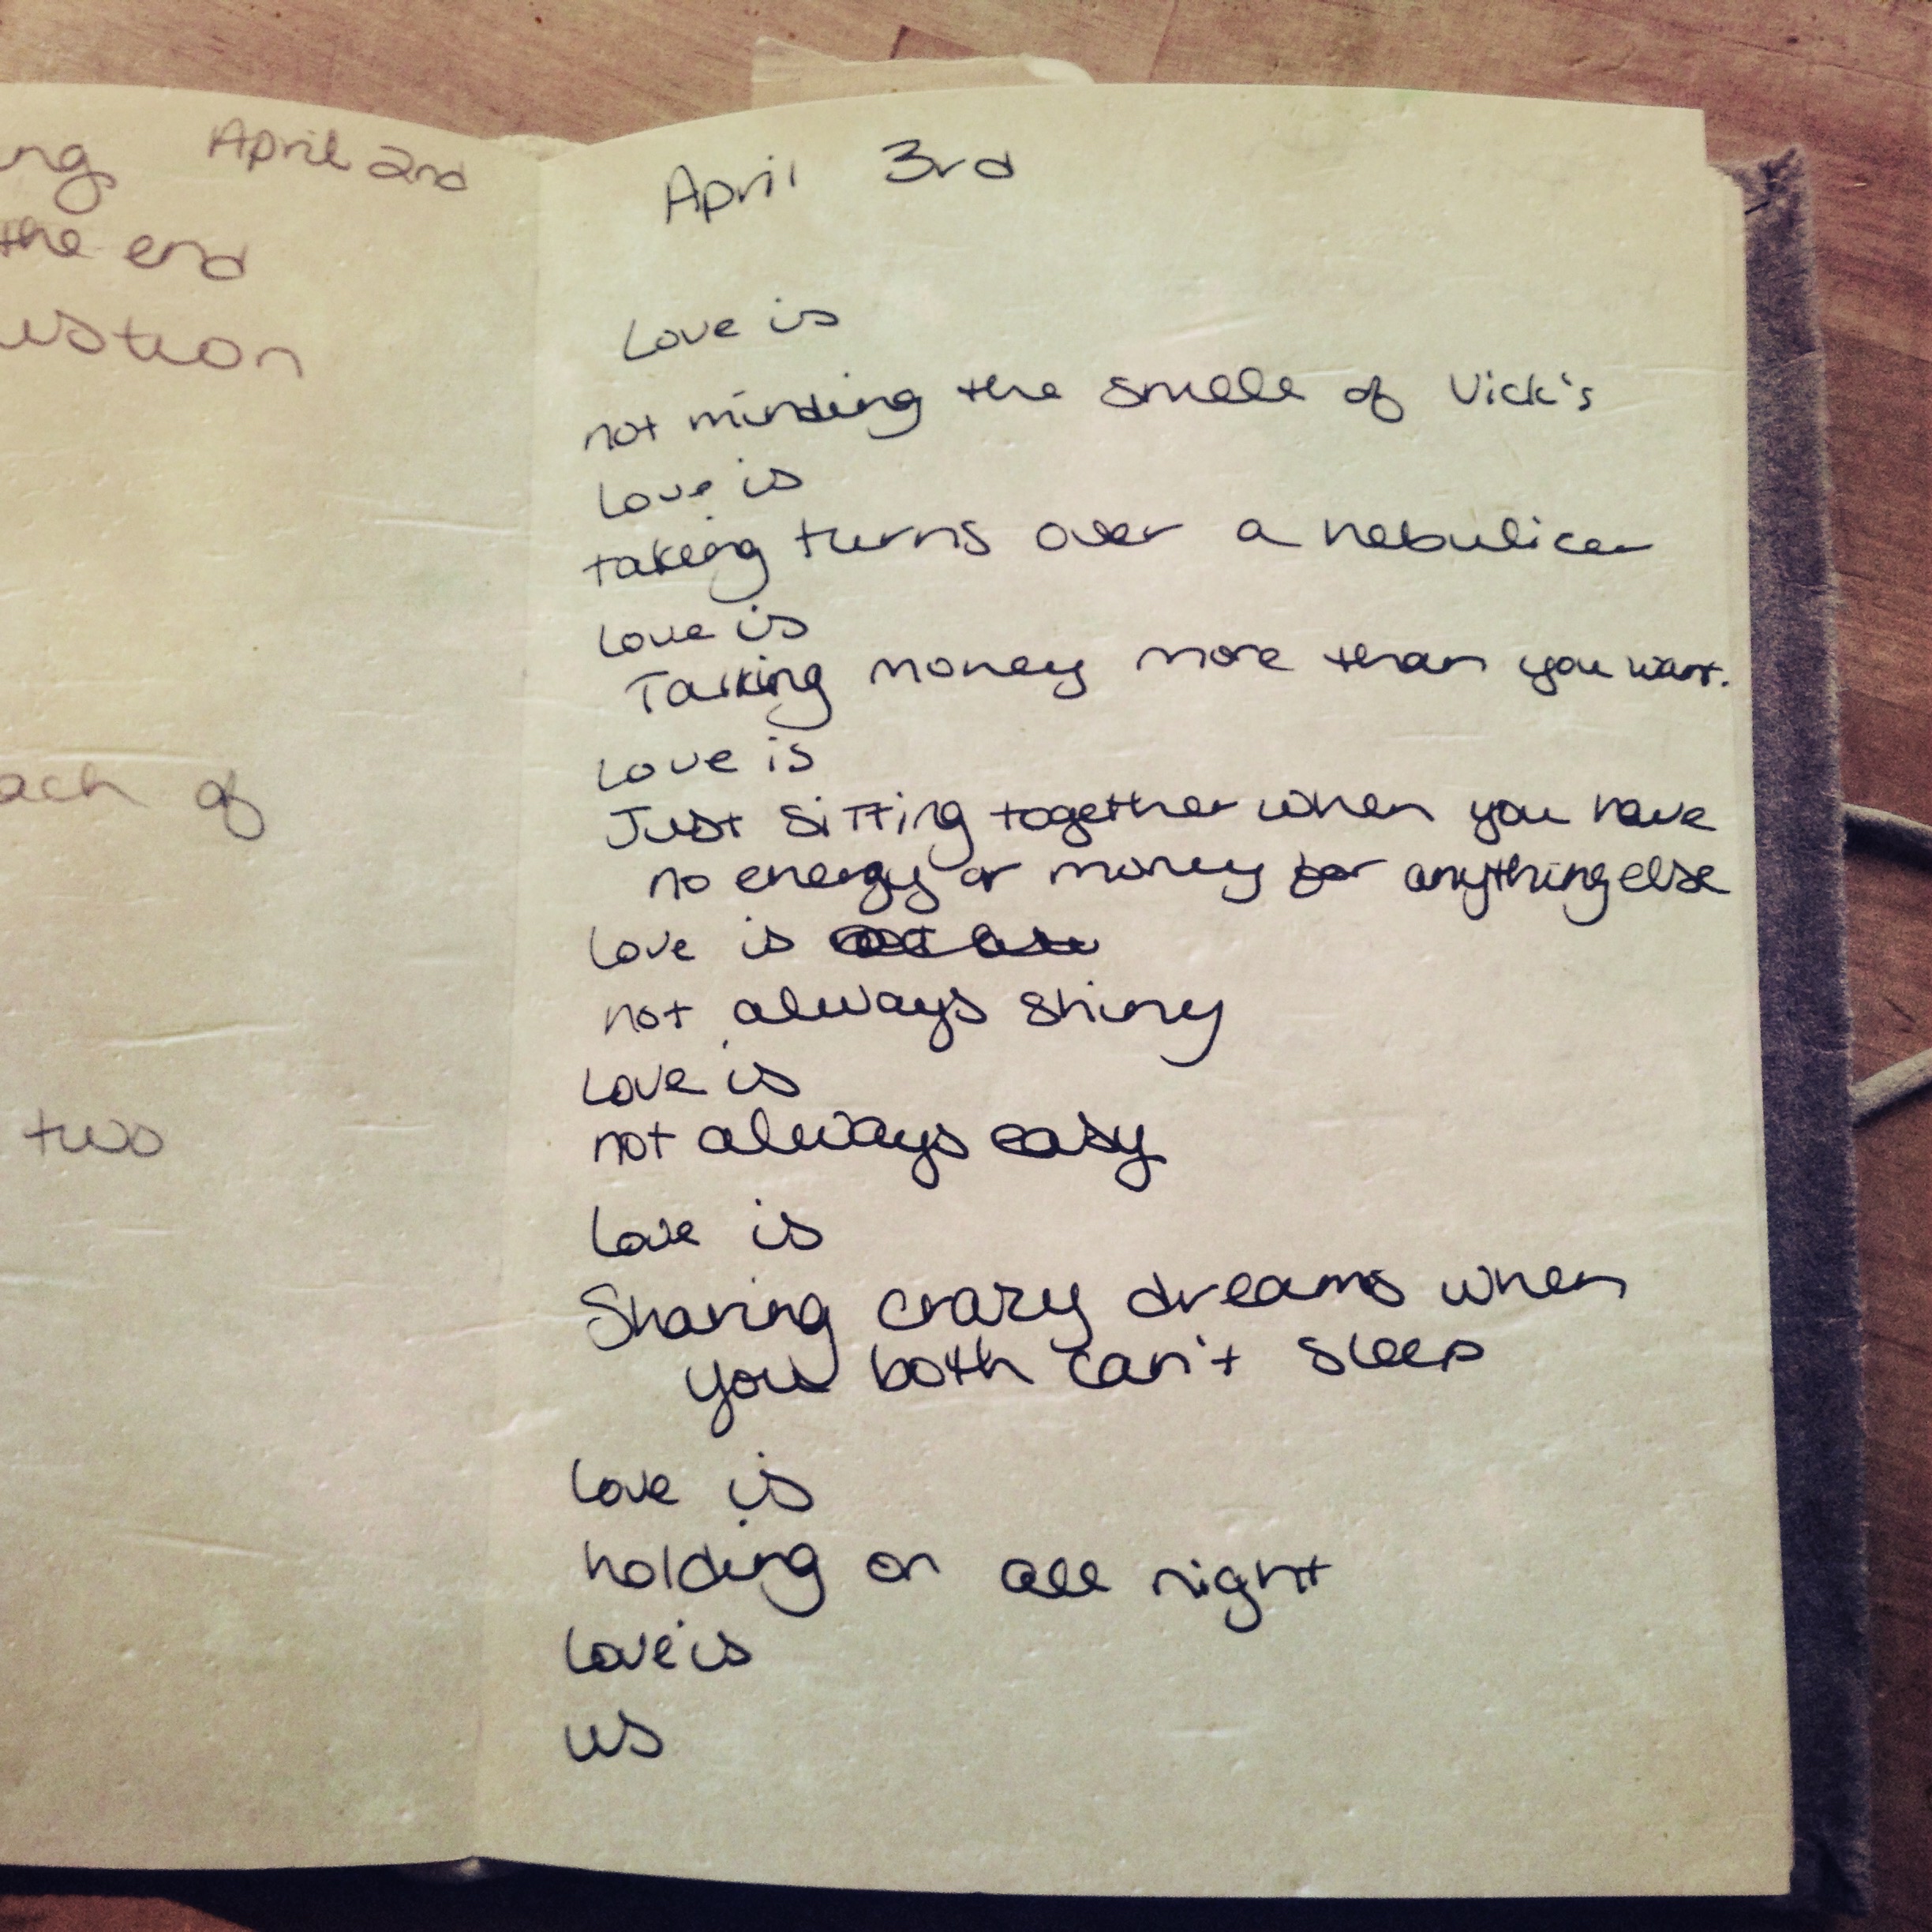 April 2nd
the end
of
two
April 3rd
Love is
not minding the smell of Vick's
Love is
taking turns over a nebulicer
Love is
Talking money more than you want.
Love is
Just sitting together when you have
no energy or money for anything else
Love is
not always shiny
Love is
not always easy
Love is
Sharing crazy dreams when
you both can't sleep
Love is
holding on all night
Love is
us